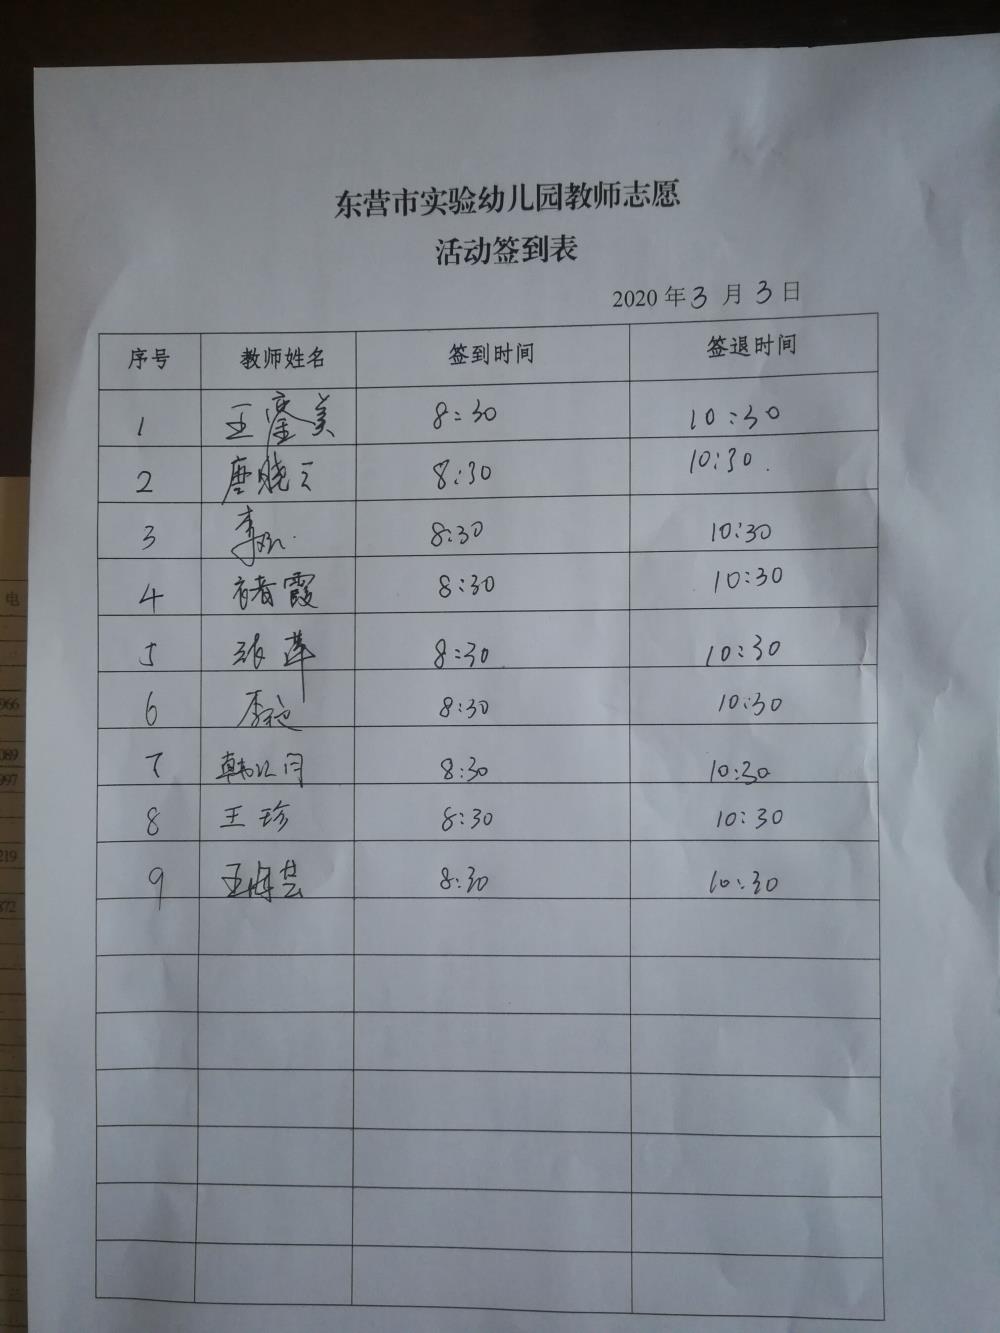 东营市实验幼儿园教师志愿
活动签到表
2020年3月3日
序号 教师姓名 签到时间 签退时间
1 王 美 8:30 10:30
2 唐晓 8:30 10:30
3 李 8:30 10:30
4 褚霞 8:30 10:30
5 张莲 8:30 10:30
6 李 8:30 10:30
7 韩 8:30 10:30
8 王珍 8:30 10:30
9 王海芸 8:30 10:30
电
966
089
997
219
872